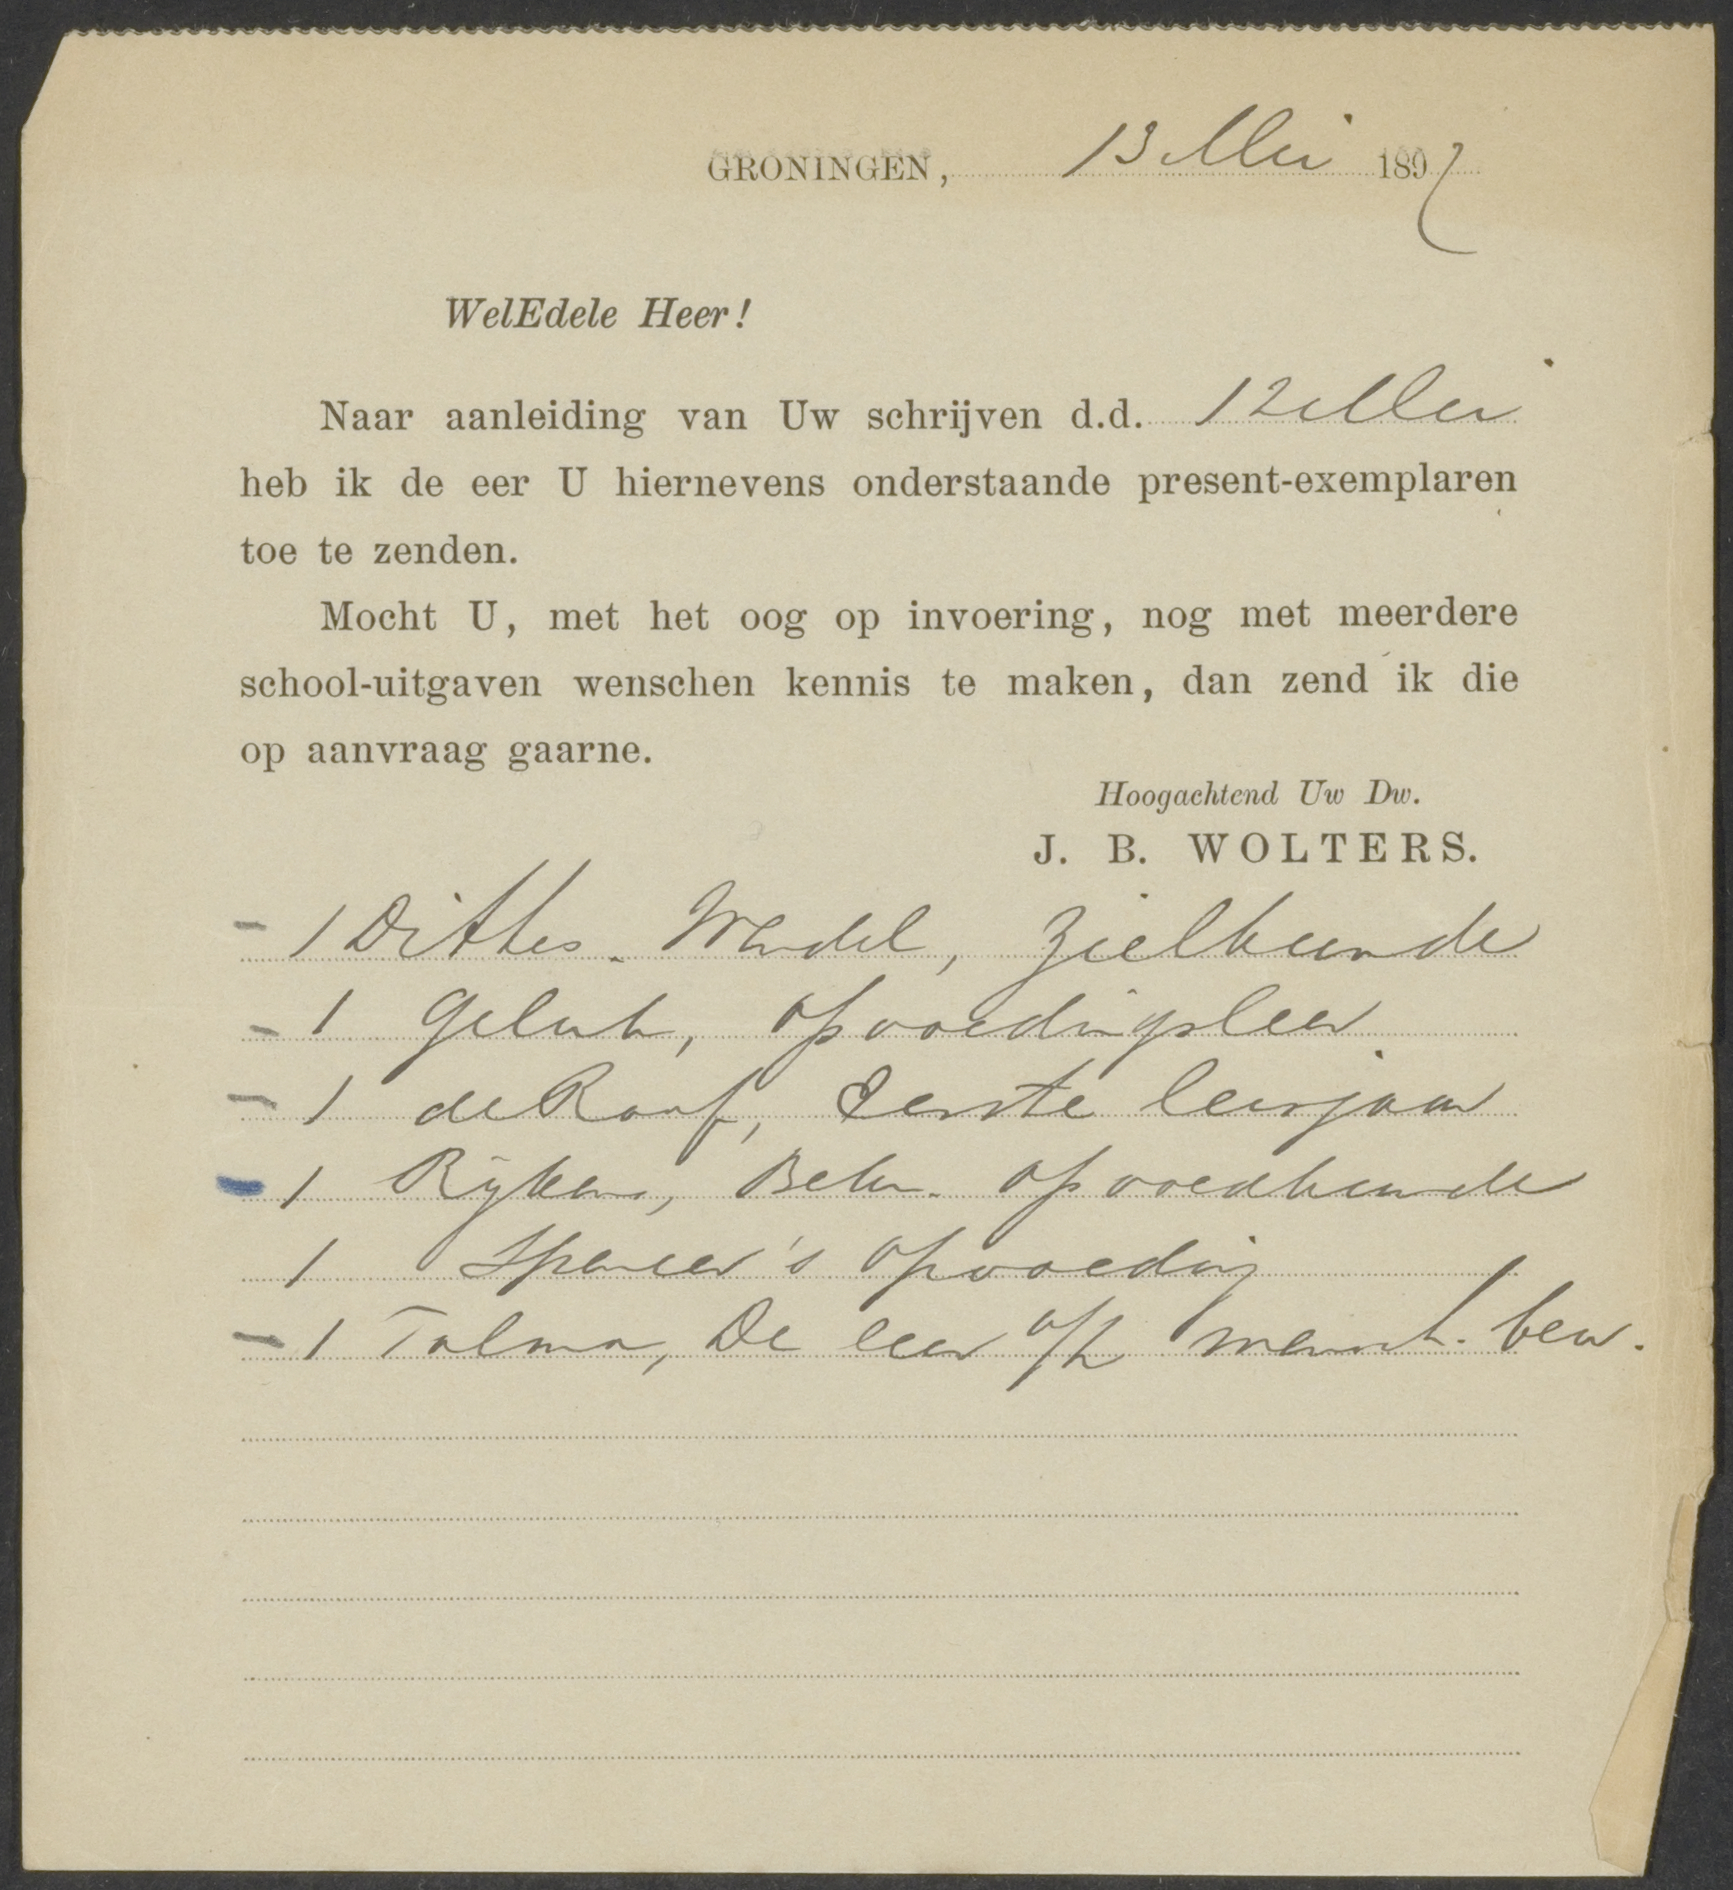 GRONINGEN, 13 Mei 1897
WelEdele Heer!
Naar aanleiding van Uw schrijven d.d. 12 Mei
heb ik de eer U hiernevens onderstaande present-exemplaren
toe te zenden.
Mocht U, met het oog op invoering, nog met meerdere
school-uitgaven wenschen kennis te maken, dan zend ik die
op aanvraag gaarne.
Hoogachtend Uw Dw.
J. B. WOLTERS.
- 1 Dittes. Wendel, Zielkunde
- 1 Geluk, opvoedingsleer
- 1 de Raaf, Eerste leerjaar
- 1 Rijkens, Bekn. opvoedkunde
1 Spencer's opvoeding
- 1 Talma, De leer o/h mensch. bew.